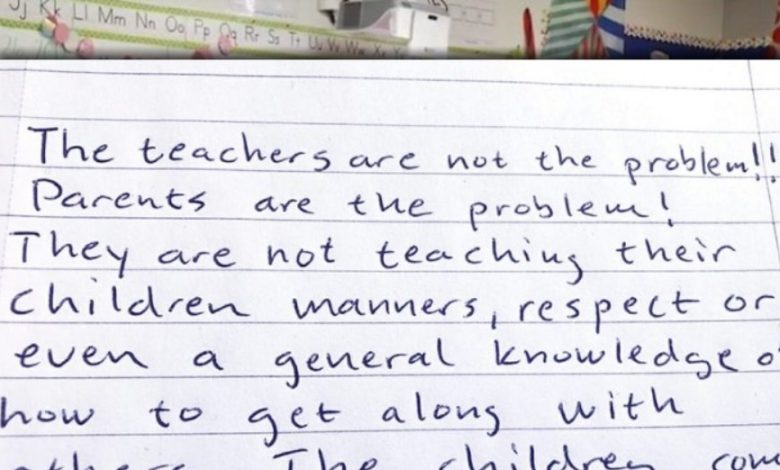 Jj Kk Ll Mm Nn Oo Pp Qq Rr Ss Tt Uu Vv Ww Xx
The teachers are not the problem!!
Parents are the problem!
They are not teaching their
children manners, respect or
even a general knowledge o
how to get along with
others. The children com